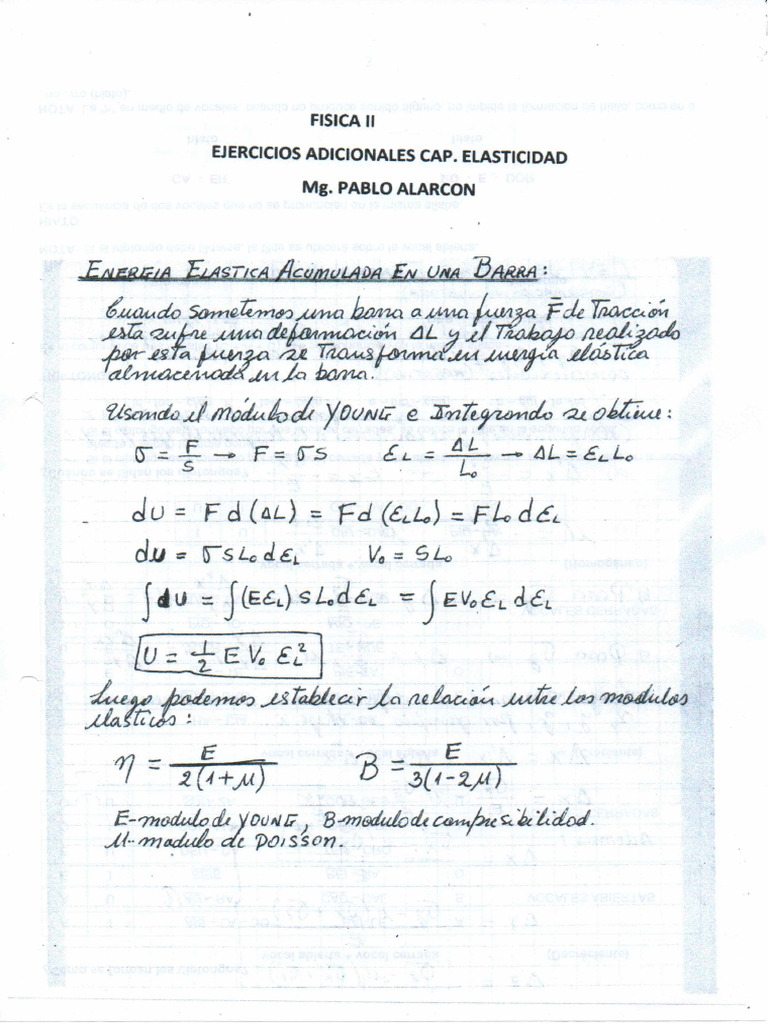 FISICA II
EJERCICIOS ADICIONALES CAP. ELASTICIDAD
Mg. PABLO ALARCON
ENERGIA ELASTICA ACUMULADA EN UNA BARRA:
Cuando sometemos una barra a una fuerza F̄ de Tracción
esta sufre una deformación ΔL y el Trabajo realizado
por esta fuerza se Transforma en energía elástica
almacenada en la barra.
Usando el módulo de YOUNG e Integrando se obtiene:
σ = F/S → F = σS   ε_L = ΔL/L₀ → ΔL = ε_L L₀
dU = F d(ΔL) = F d(ε_L L₀) = F L₀ dε_L
dU = σ S L₀ dε_L   V₀ = S L₀
∫dU = ∫(E ε_L) S L₀ dε_L = ∫E V₀ ε_L dε_L
U = 1/2 E V₀ ε_L²
Luego podemos establecer la relación entre los modulos
elasticos:
η = E/2(1+μ)   B = E/3(1-2μ)
E-modulo de YOUNG, B-modulo de compresibilidad.
μ-modulo de POISSON.